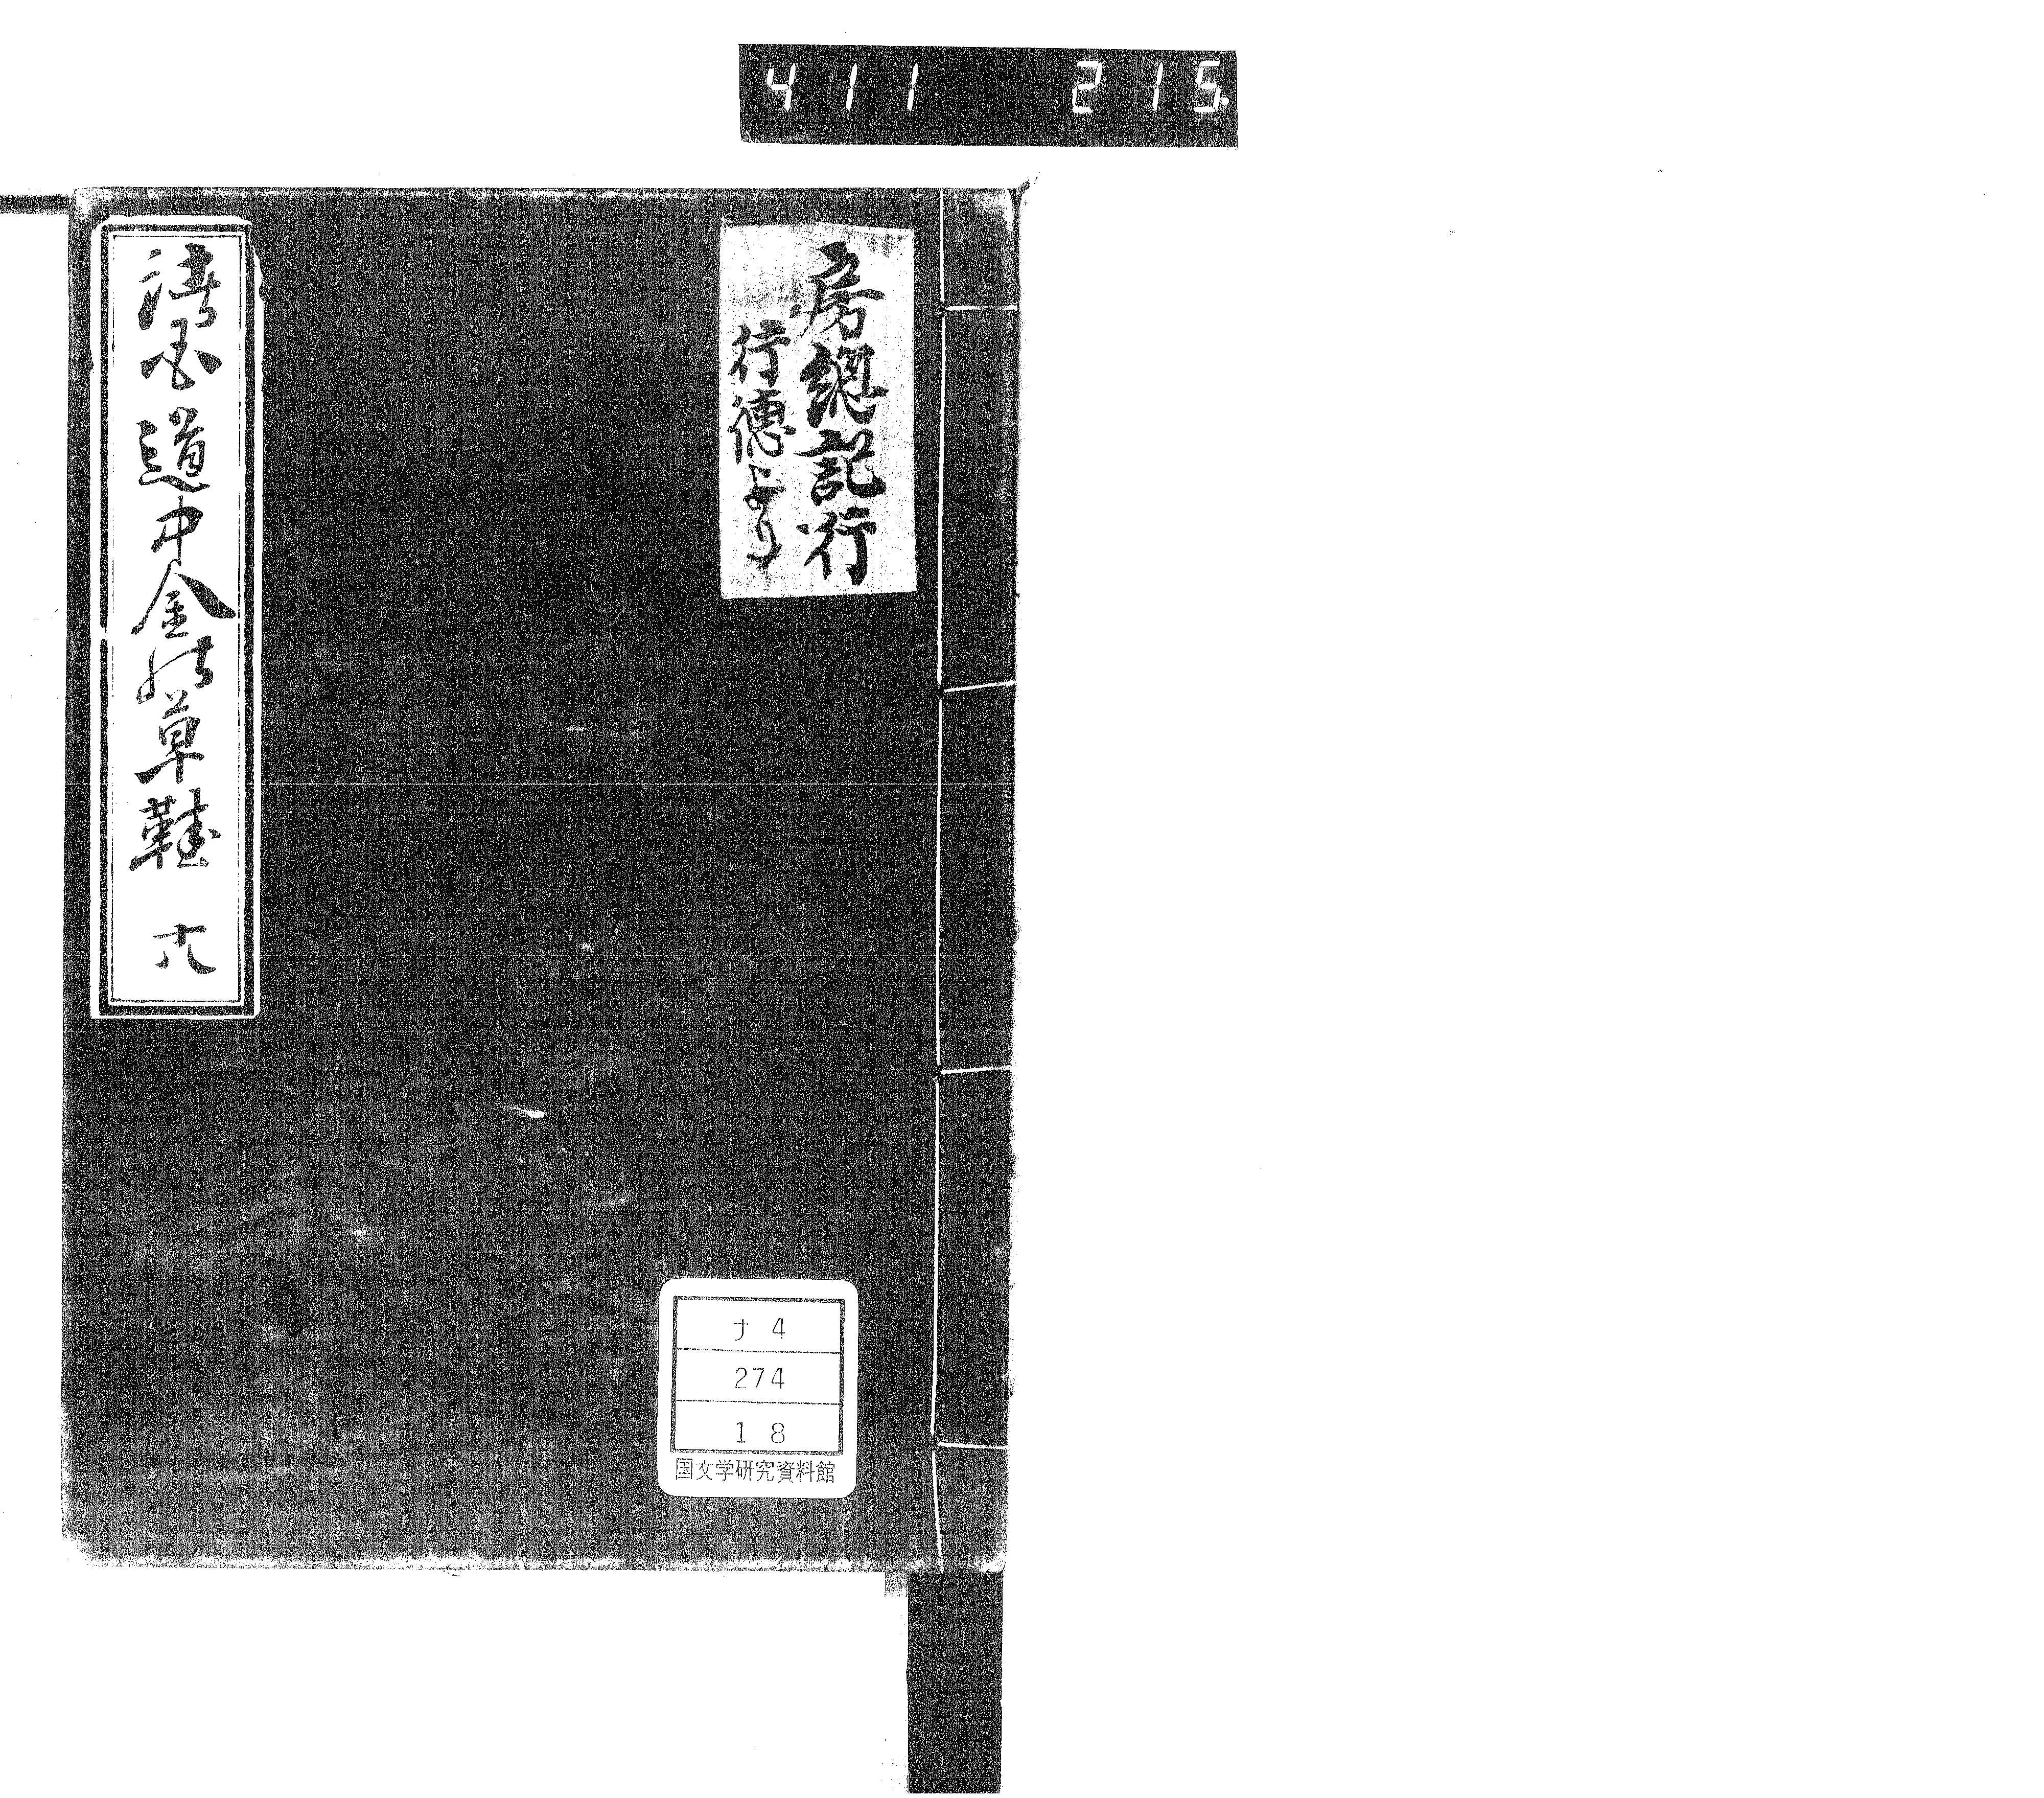 411 215.
房總記行
行徳より
諸国道中金の草鞋 十八
ナ 4
274
1 8
国文学研究資料館